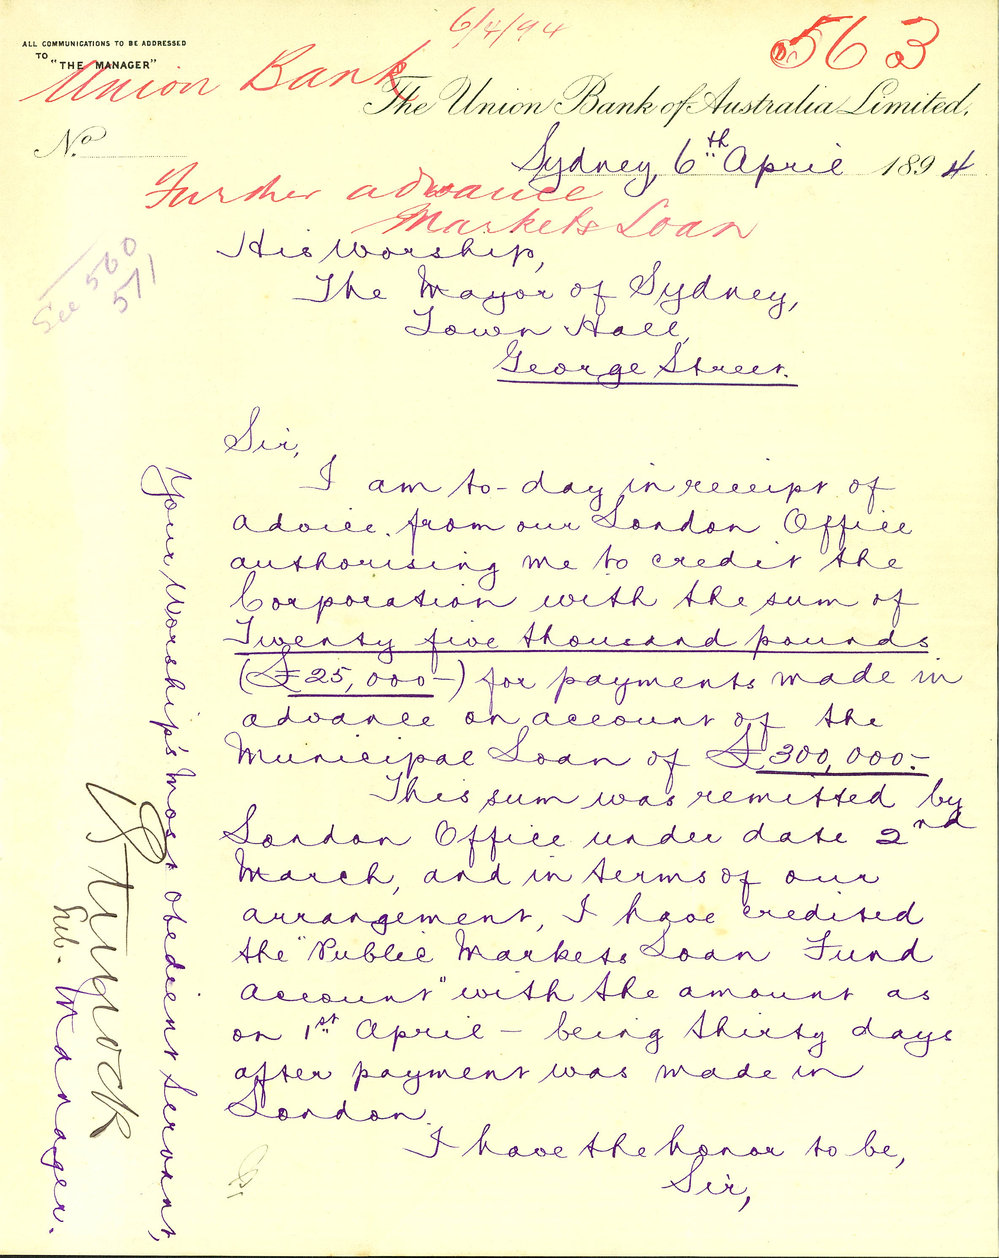 6/4/94
563
ALL COMMUNICATIONS TO BE ADDRESSED
TO "THE MANAGER"
Union Bank
The Union Bank of Australia Limited.
No.
Sydney, 6th April 1894
Further advance
Markets Loan
See 560
571
His Worship,
The Mayor of Sydney,
Town Hall,
George Street.
Sir,
I am to-day in receipt of
advice from our London Office
authorising me to credit the
Corporation with the sum of
Twenty five thousand pounds
(£25,000-) for payments made in
advance on account of the
Municipal Loan of £300,000-.
This sum was remitted by
London Office under date 2nd
March, and in terms of our
arrangement, I have credited
the "Public Markets Loan Fund
Account" with the amount as
on 1st April - being thirty days
after payment was made in
London.
I have the honor to be,
Sir,
Your Worship's most obedient Servant,
Sub. Manager.